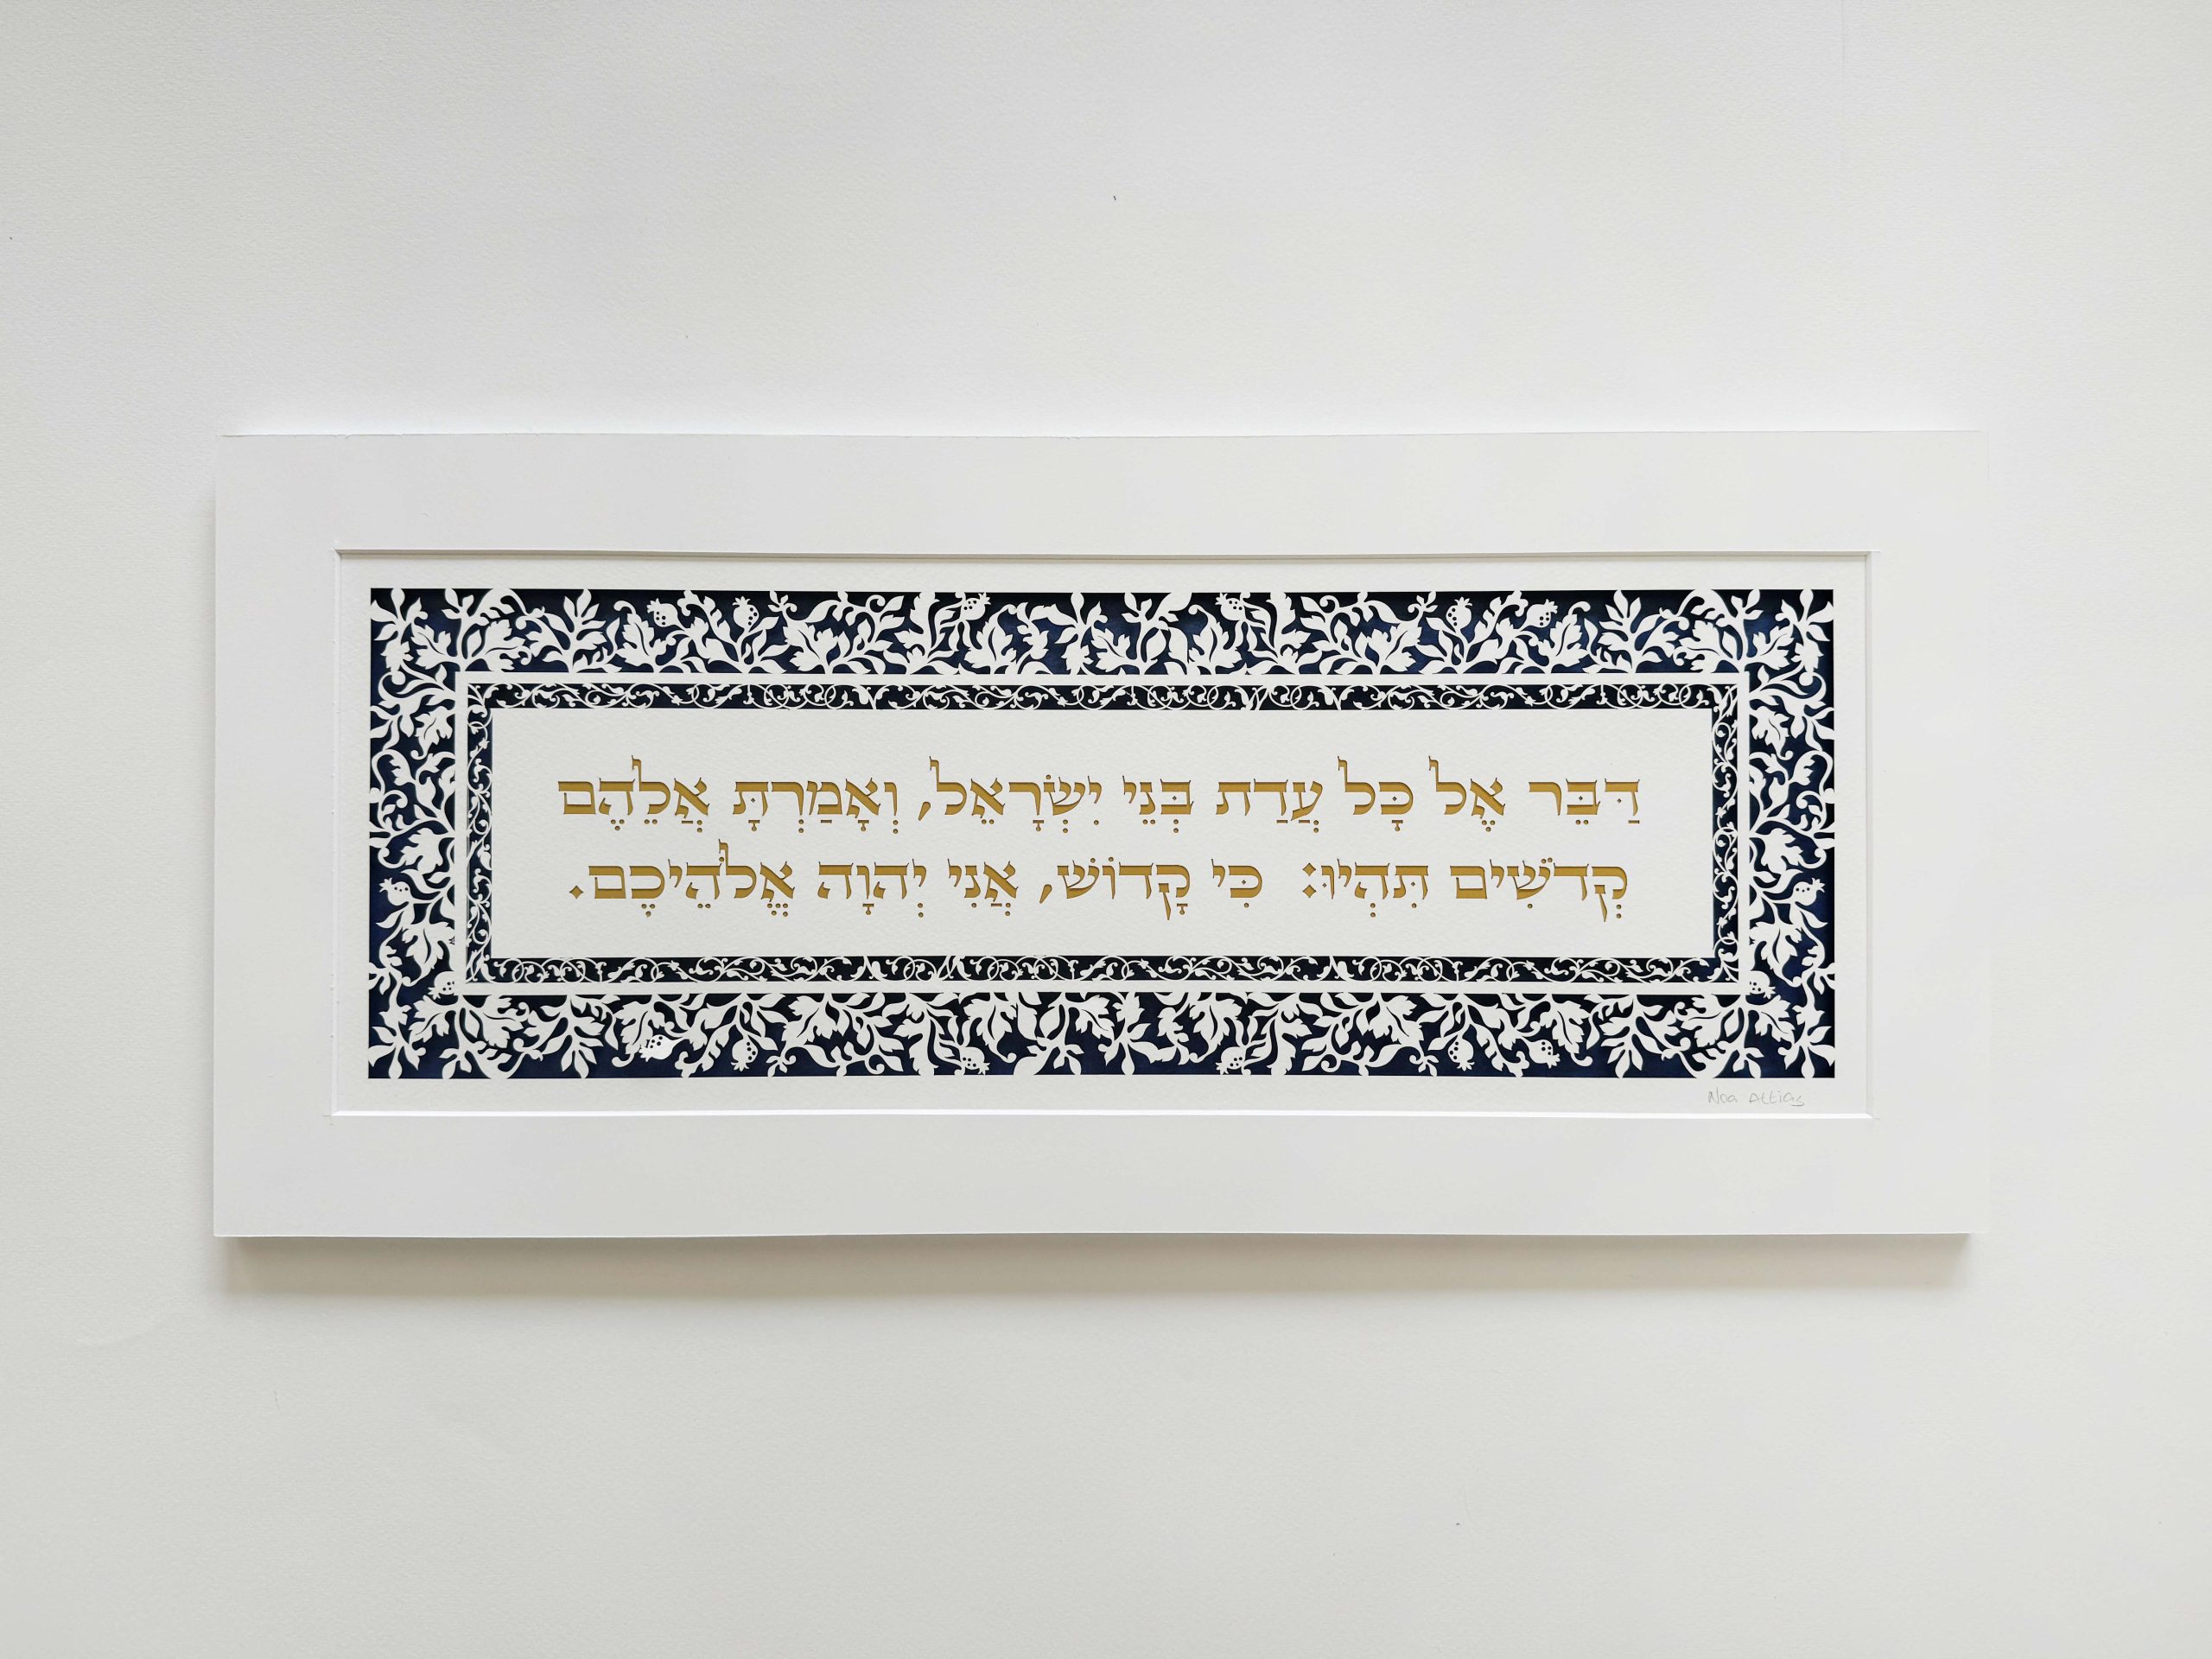 דַּבֵּר אֶל כָּל עֲדַת בְּנֵי יִשְׂרָאֵל, וְאָמַרְתָּ אֲלֵהֶם
קְדֹשִׁים תִּהְיוּ: כִּי קָדוֹשׁ, אֲנִי יְהוָה אֱלֹהֵיכֶם.
Noa Attias